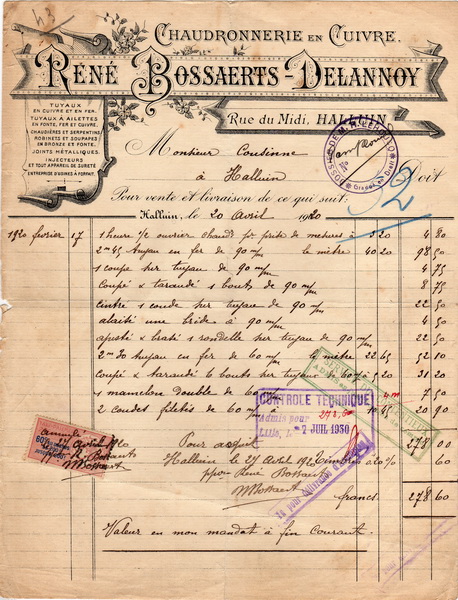 CHAUDRONNERIE EN CUIVRE.
RENÉ BOSSAERTS-DELANNOY
Rue du Midi, HALLUIN
TUYAUX
EN CUIVRE ET EN FER.
TUYAUX À AILETTES
EN FONTE, FER ET CUIVRE.
CHAUDIÈRES ET SERPENTINS
ROBINETS ET SOUPAPES
EN BRONZE ET FONTE.
JOINTS MÉTALLIQUES
INJECTEURS
ET TOUT APPAREIL DE SURETÉ
ENTREPRISE D'USINES À FORFAIT.
Monsieur Cousinne
à Halluin Doit
52
Pour vente et livraison de ce qui suit:
Halluin, le 20 avril 1920
1920 février 17 1 heure ½ ouvrier chaud. pr prise de mesures à 3 20 4 80
2m 45 tuyau en fer de 90 m/m le mètre 40 20 98 50
1 coupe sur tuyau de 90 m/m 4 75
coupé & taraudé 2 bouts de 90 m/m 8 75
1 coude sur tuyau de 90 m/m 22 50
une bride à 90 m/m 4 50
ajusté & brasé 1 rondelle sur tuyau de 90 m/m 22 50
2m 30 tuyau en fer de 60 m/m le mètre 22 65 52 10
coupé & taraudé 6 bouts sur tuyau de 60 m/m 5 20 31 20
1 mamelon double de 60 m/m 7 50
2 coudes filetés de 60 m/m à 10 45 20 90
278 00
CONTROLE TECHNIQUE
Admis pour 272,60
Lille, le 7 JUIL 1930
Pour acquit
Halluin le 27 avril 1920 Timbres 0.20 % 60
ppon René Bossaerts
MBossaert francs 278 60
annulé
le 27 avril 1920
ppon R. Bossaerts
MBossaert
Valeur en mon mandat à fin Courant.